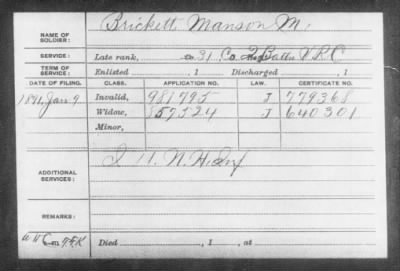 NAME OF SOLDIER: Brickett, Manson M.
SERVICE: Late rank, Co. 31 Co. 2 Batt. V R C
TERM OF SERVICE: Enlisted , 1 Discharged , 1
DATE OF FILING. CLASS. APPLICATION NO. LAW. CERTIFICATE NO.
1891, Jan 9 Invalid, 981795 J 779368
Widow, 859324 J 640301
Minor,
ADDITIONAL SERVICES: I 11. N.H. Inf
REMARKS:
Died , 1 , at